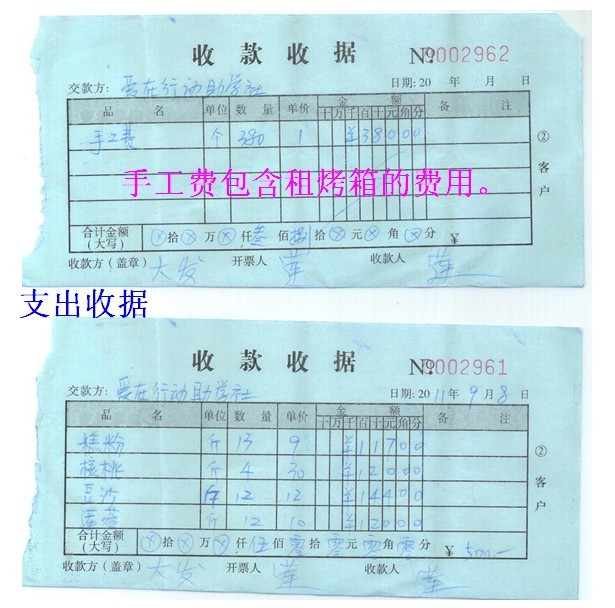 收款收据 № 0002962
交款方：爱在行动助学社 日期：20 年 月 日
品名 单位 数量 单价 金额 备注
十万千百十元角分
手工费 个 380 1 ¥38000
手工费包含租烤箱的费用。
②客户
合计金额(大写) ⊗拾⊗万⊗仟叁佰捌拾⊗元⊗角⊗分 ¥
收款方（盖章）大发 开票人 收款人
支出收据
收款收据 № 0002961
交款方：爱在行动助学社 日期：2011年9月8日
品名 单位 数量 单价 金额 备注
十万千百十元角分
糕粉 斤 13 9 ¥11700
核桃 斤 4 30 ¥12000
豆沙 斤 12 12 ¥14400
莲蓉 斤 12 10 ¥12000
②客户
合计金额(大写) ⊗拾⊗万⊗仟伍佰零拾零元零角零分 ¥
收款方（盖章）大发 开票人 收款人